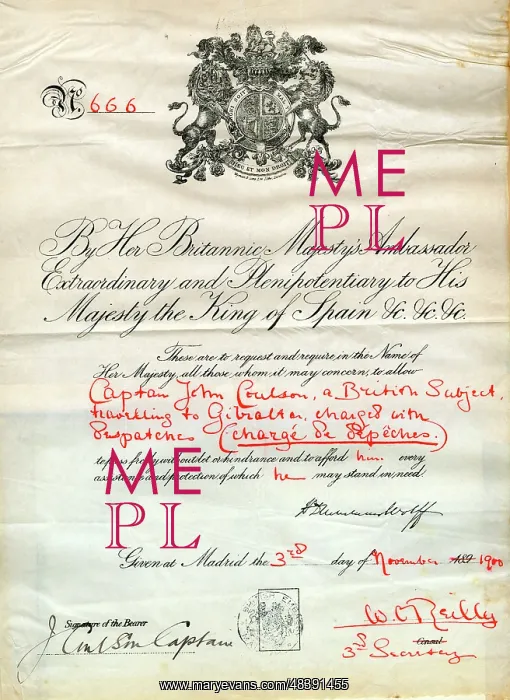 No. 666
DIEU ET MON DROIT
ME
PL
By Her Britannic Majesty's Ambassador
Extraordinary and Plenipotentiary to His
Majesty the King of Spain &c. &c. &c.
These are to request and require in the Name of
Her Majesty, all those whom it may concern, to allow
Captain John Coulson, a British Subject,
travelling to Gibraltar, charged with
Despatches (chargé de Dépêches.)
to pass freely without let or hindrance and to afford him every
assistance and protection of which he may stand in need.
ME
PL
Given at Madrid the 3rd day of November 189 1900
W. O'Reilly
Signature of the Bearer
Consul
3d Secretary
J Coulson Captain
www.maryevans.com/48391455